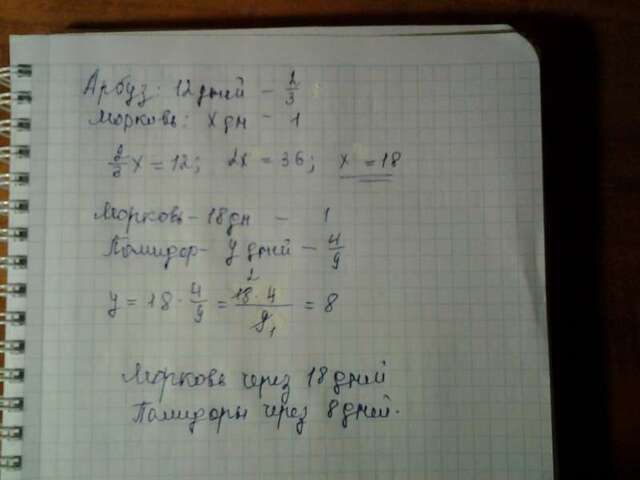 Арбуз: 12 дней - 2/3
Морковь: x дн - 1
2/3 x = 12; 2x = 36; x = 18
Морковь - 18 дн - 1
Помидор - y дней - 4/9
y = 18 · 4/9 = 18 2 · 4 / 9 1 = 8
Морковь через 18 дней
Помидоры через 8 дней.